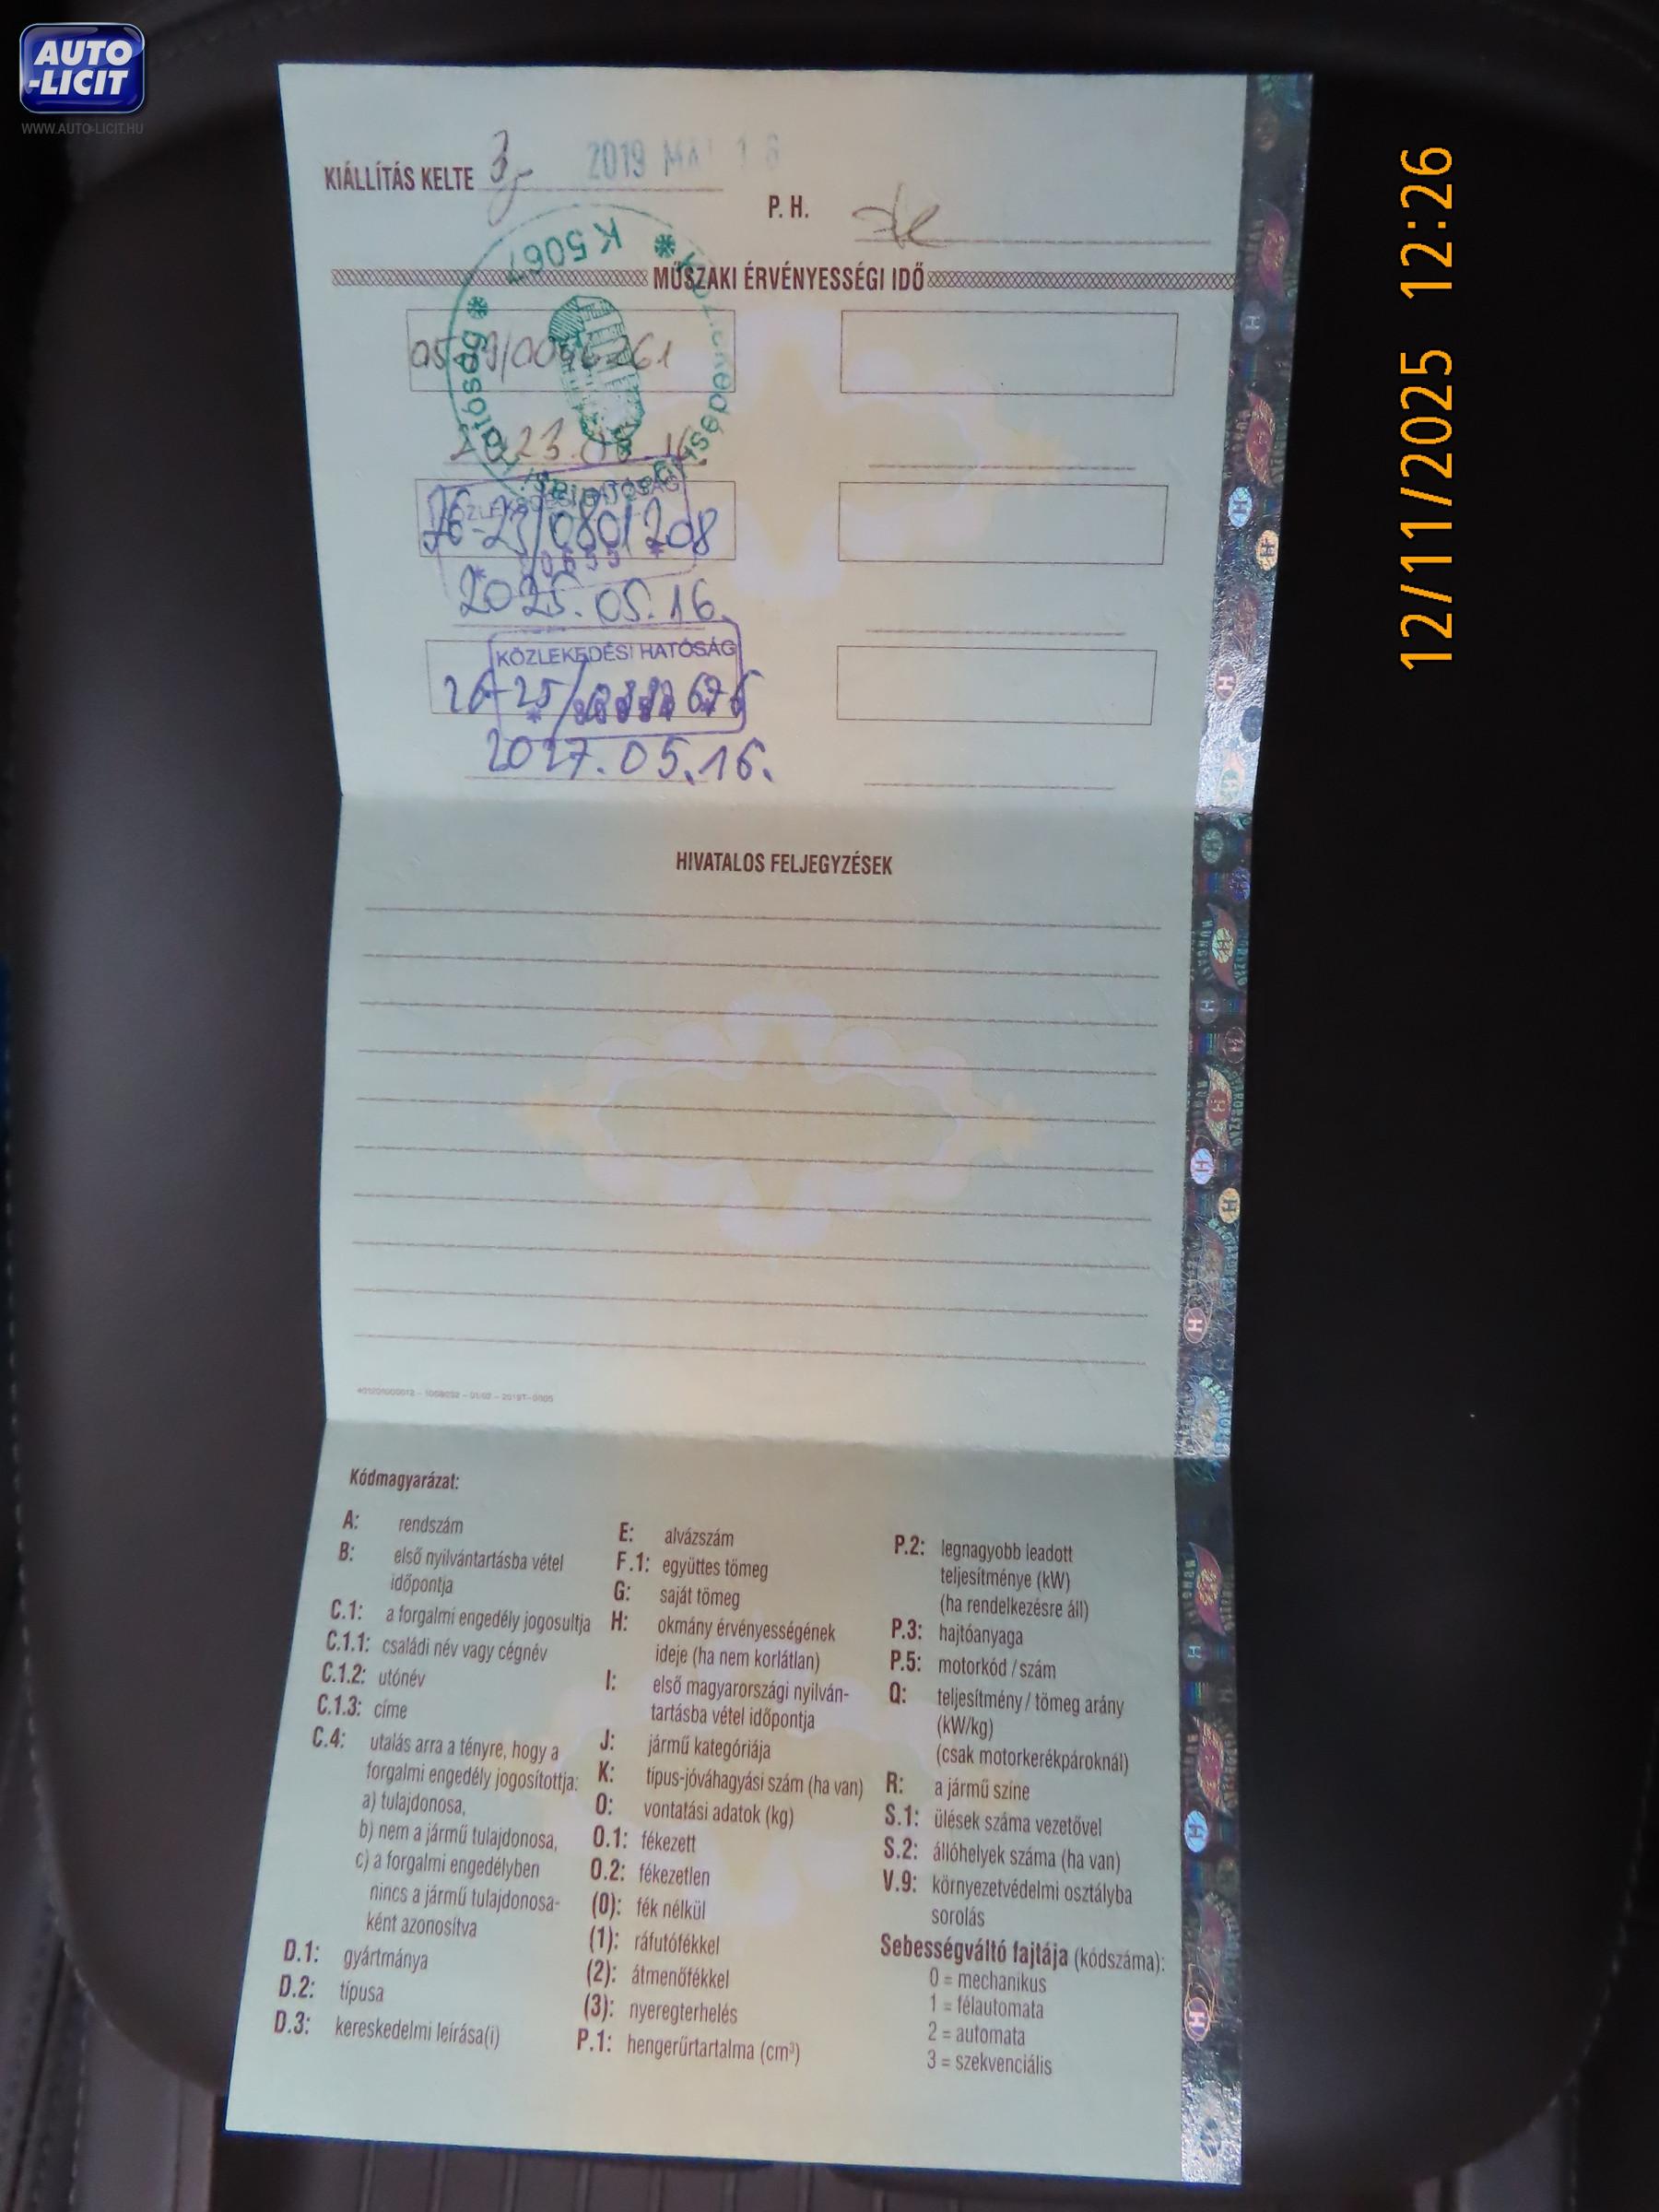 AUTO
-LICIT
WWW.AUTO-LICIT.HU
12/11/2025 12:26
KIÁLLÍTÁS KELTE 2019 16
P. H.
K 5067
MŰSZAKI ÉRVÉNYESSÉGI IDŐ
2023.05.16.
KÖZLEKEDÉSI HATÓSÁG
26-23/0801208
2025.05.16.
KÖZLEKEDÉSI HATÓSÁG
2027.05.16.
HIVATALOS FELJEGYZÉSEK
Kódmagyarázat:
A: rendszám
B: első nyilvántartásba vétel
időpontja
C.1: a forgalmi engedély jogosultja
C.1.1: családi név vagy cégnév
C.1.2: utónév
C.1.3: címe
C.4: utalás arra a tényre, hogy a
forgalmi engedély jogosítottja:
a) tulajdonosa,
b) nem a jármű tulajdonosa,
c) a forgalmi engedélyben
nincs a jármű tulajdonosa-
ként azonosítva
D.1: gyártmánya
D.2: típusa
D.3: kereskedelmi leírása(i)
E: alvázszám
F.1: együttes tömeg
G: saját tömeg
H: okmány érvényességének
ideje (ha nem korlátlan)
I: első magyarországi nyilván-
tartásba vétel időpontja
J: jármű kategóriája
K: típus-jóváhagyási szám (ha van)
O: vontatási adatok (kg)
O.1: fékezett
O.2: fékezetlen
(0): fék nélkül
(1): ráfutófékkel
(2): átmenőfékkel
(3): nyeregterhelés
P.1: hengerűrtartalma (cm³)
P.2: legnagyobb leadott
teljesítménye (kW)
(ha rendelkezésre áll)
P.3: hajtóanyaga
P.5: motorkód / szám
Q: teljesítmény / tömeg arány
(kW/kg)
(csak motorkerékpároknál)
R: a jármű színe
S.1: ülések száma vezetővel
S.2: állóhelyek száma (ha van)
V.9: környezetvédelmi osztályba
sorolás
Sebességváltó fajtája (kódszáma):
0 = mechanikus
1 = félautomata
2 = automata
3 = szekvenciális